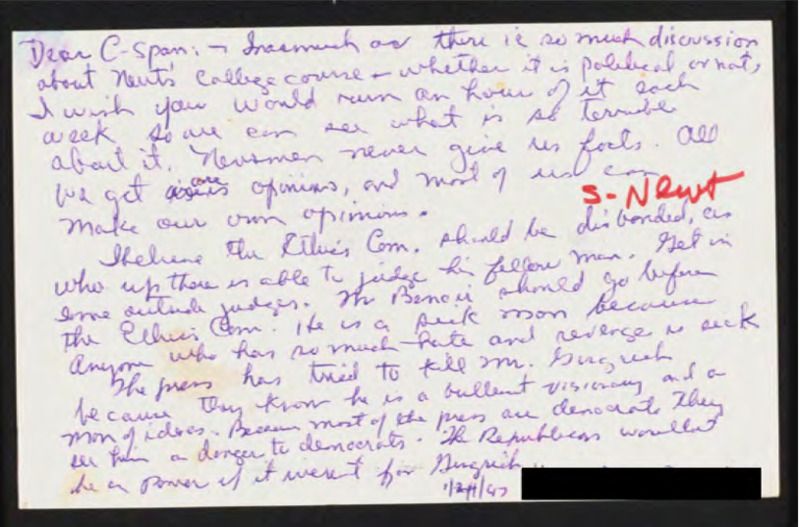 Dear C-Span: - Inasmuch as there is so much discussion
about Newt's College course - whether it is political or not,
I wish you would run an hour of it each
week so we can see what is so terrible
about it. Newsmen never give us facts. All
we get are opinions, and most of us can
S-Newt
make our own opinions.
I believe the Ethics Com. should be disbanded, as
who up there is able to judge his fellow man. Get in
some outside judges. Mr should go before
the Ethics Com. He is a sick man because
Anyone who has so much hate and revenge is sick
The press has tried to kill Mr. Gingrich
because they know he is a visionary and a
man of ideas. Because most of the press are democrats They
see him a danger to democrats. The Republicans wouldnt
be in power if it werent for Gingrich